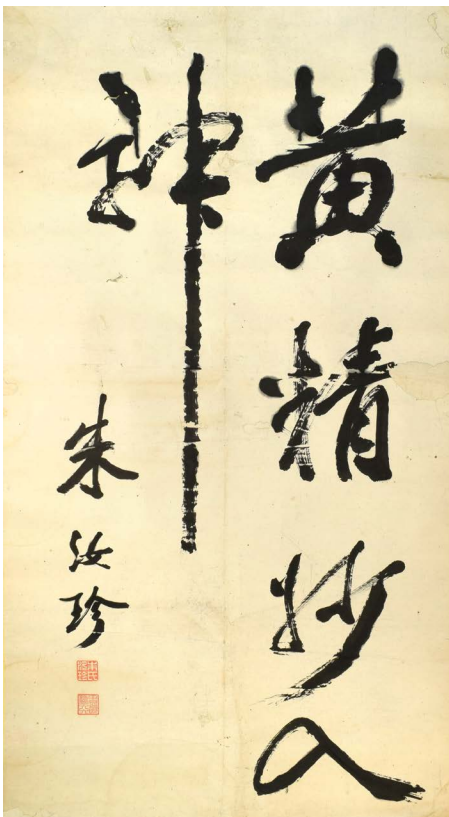 黄精妙入
神
朱汝珍